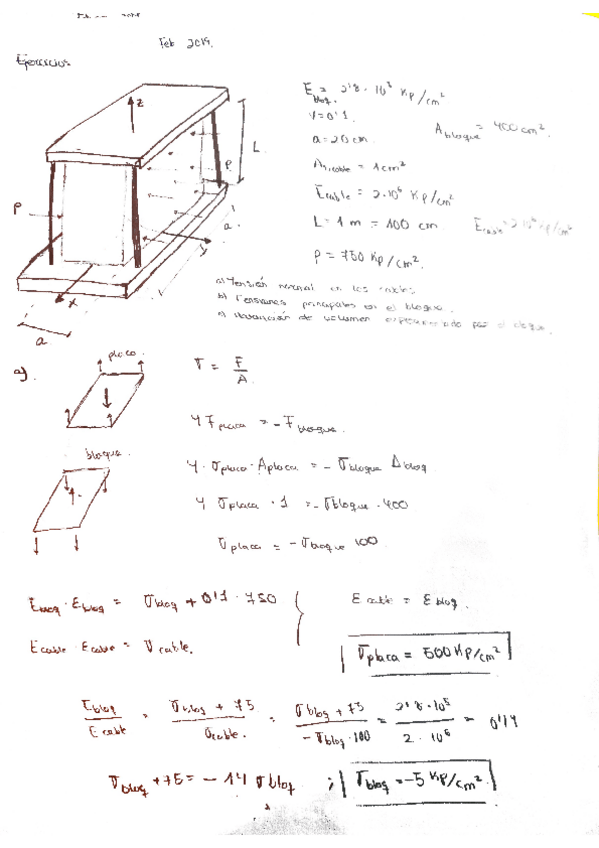 Feb 2019.
Ejercicios
E bloq. = 2'8 · 10⁵ Kp/cm²
ν = 0'1.
A bloque = 400 cm².
a = 20 cm.
A cable = 1 cm²
E cable = 2·10⁶ Kp/cm²
L = 1 m = 100 cm.
E cable = 2·10⁶ Kp/cm²
P = 750 Kp/cm².
z
L
P
P
a
y
x
a
a) Tensión normal en los cables
b) Tensiones principales en el bloque.
c) Variación de volumen experimentado por el bloque.
a).
placa.
σ = F/A.
4 F placa = - F bloque.
bloque.
4 · σ placa · A placa = - σ bloque A bloq.
4 σ placa · 1 = - σ bloque · 400
σ placa = - σ bloque 100.
E bloq · ε bloq = σ bloq + 0'1 · 750
E cable · ε cable = σ cable.
ε cable = ε bloq.
σ placa = 500 Kp/cm²
E bloq / E cable = σ bloq + 75 / σ cable. = σ bloq + 75 / - σ bloq · 100 = 2'8 · 10⁵ / 2 · 10⁶ = 0'14
σ bloq + 75 = - 14 σ bloq ; σ bloq = -5 Kp/cm².